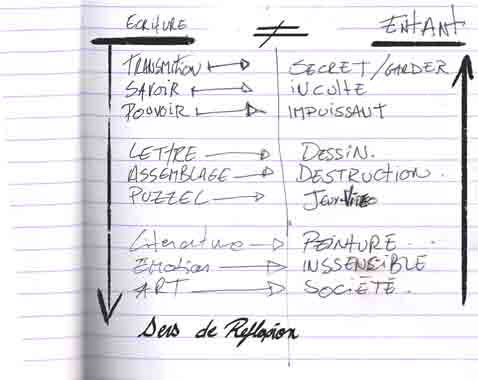 ECRITURE ≠ ENFANT
TRANSMITION ↔ SECRET/GARDER
SAVOIR ↔ INCULTE
POUVOIR ↔ IMPUISSANT
LETTRE → DESSIN.
ASSEMBLAGE → DESTRUCTION.
PUZZEL → JEUX VIDEO
Literature → PEINTURE...
Emotion → INSSENSIBLE
ART → SOCIÉTÉ.
Sens de Reflexion